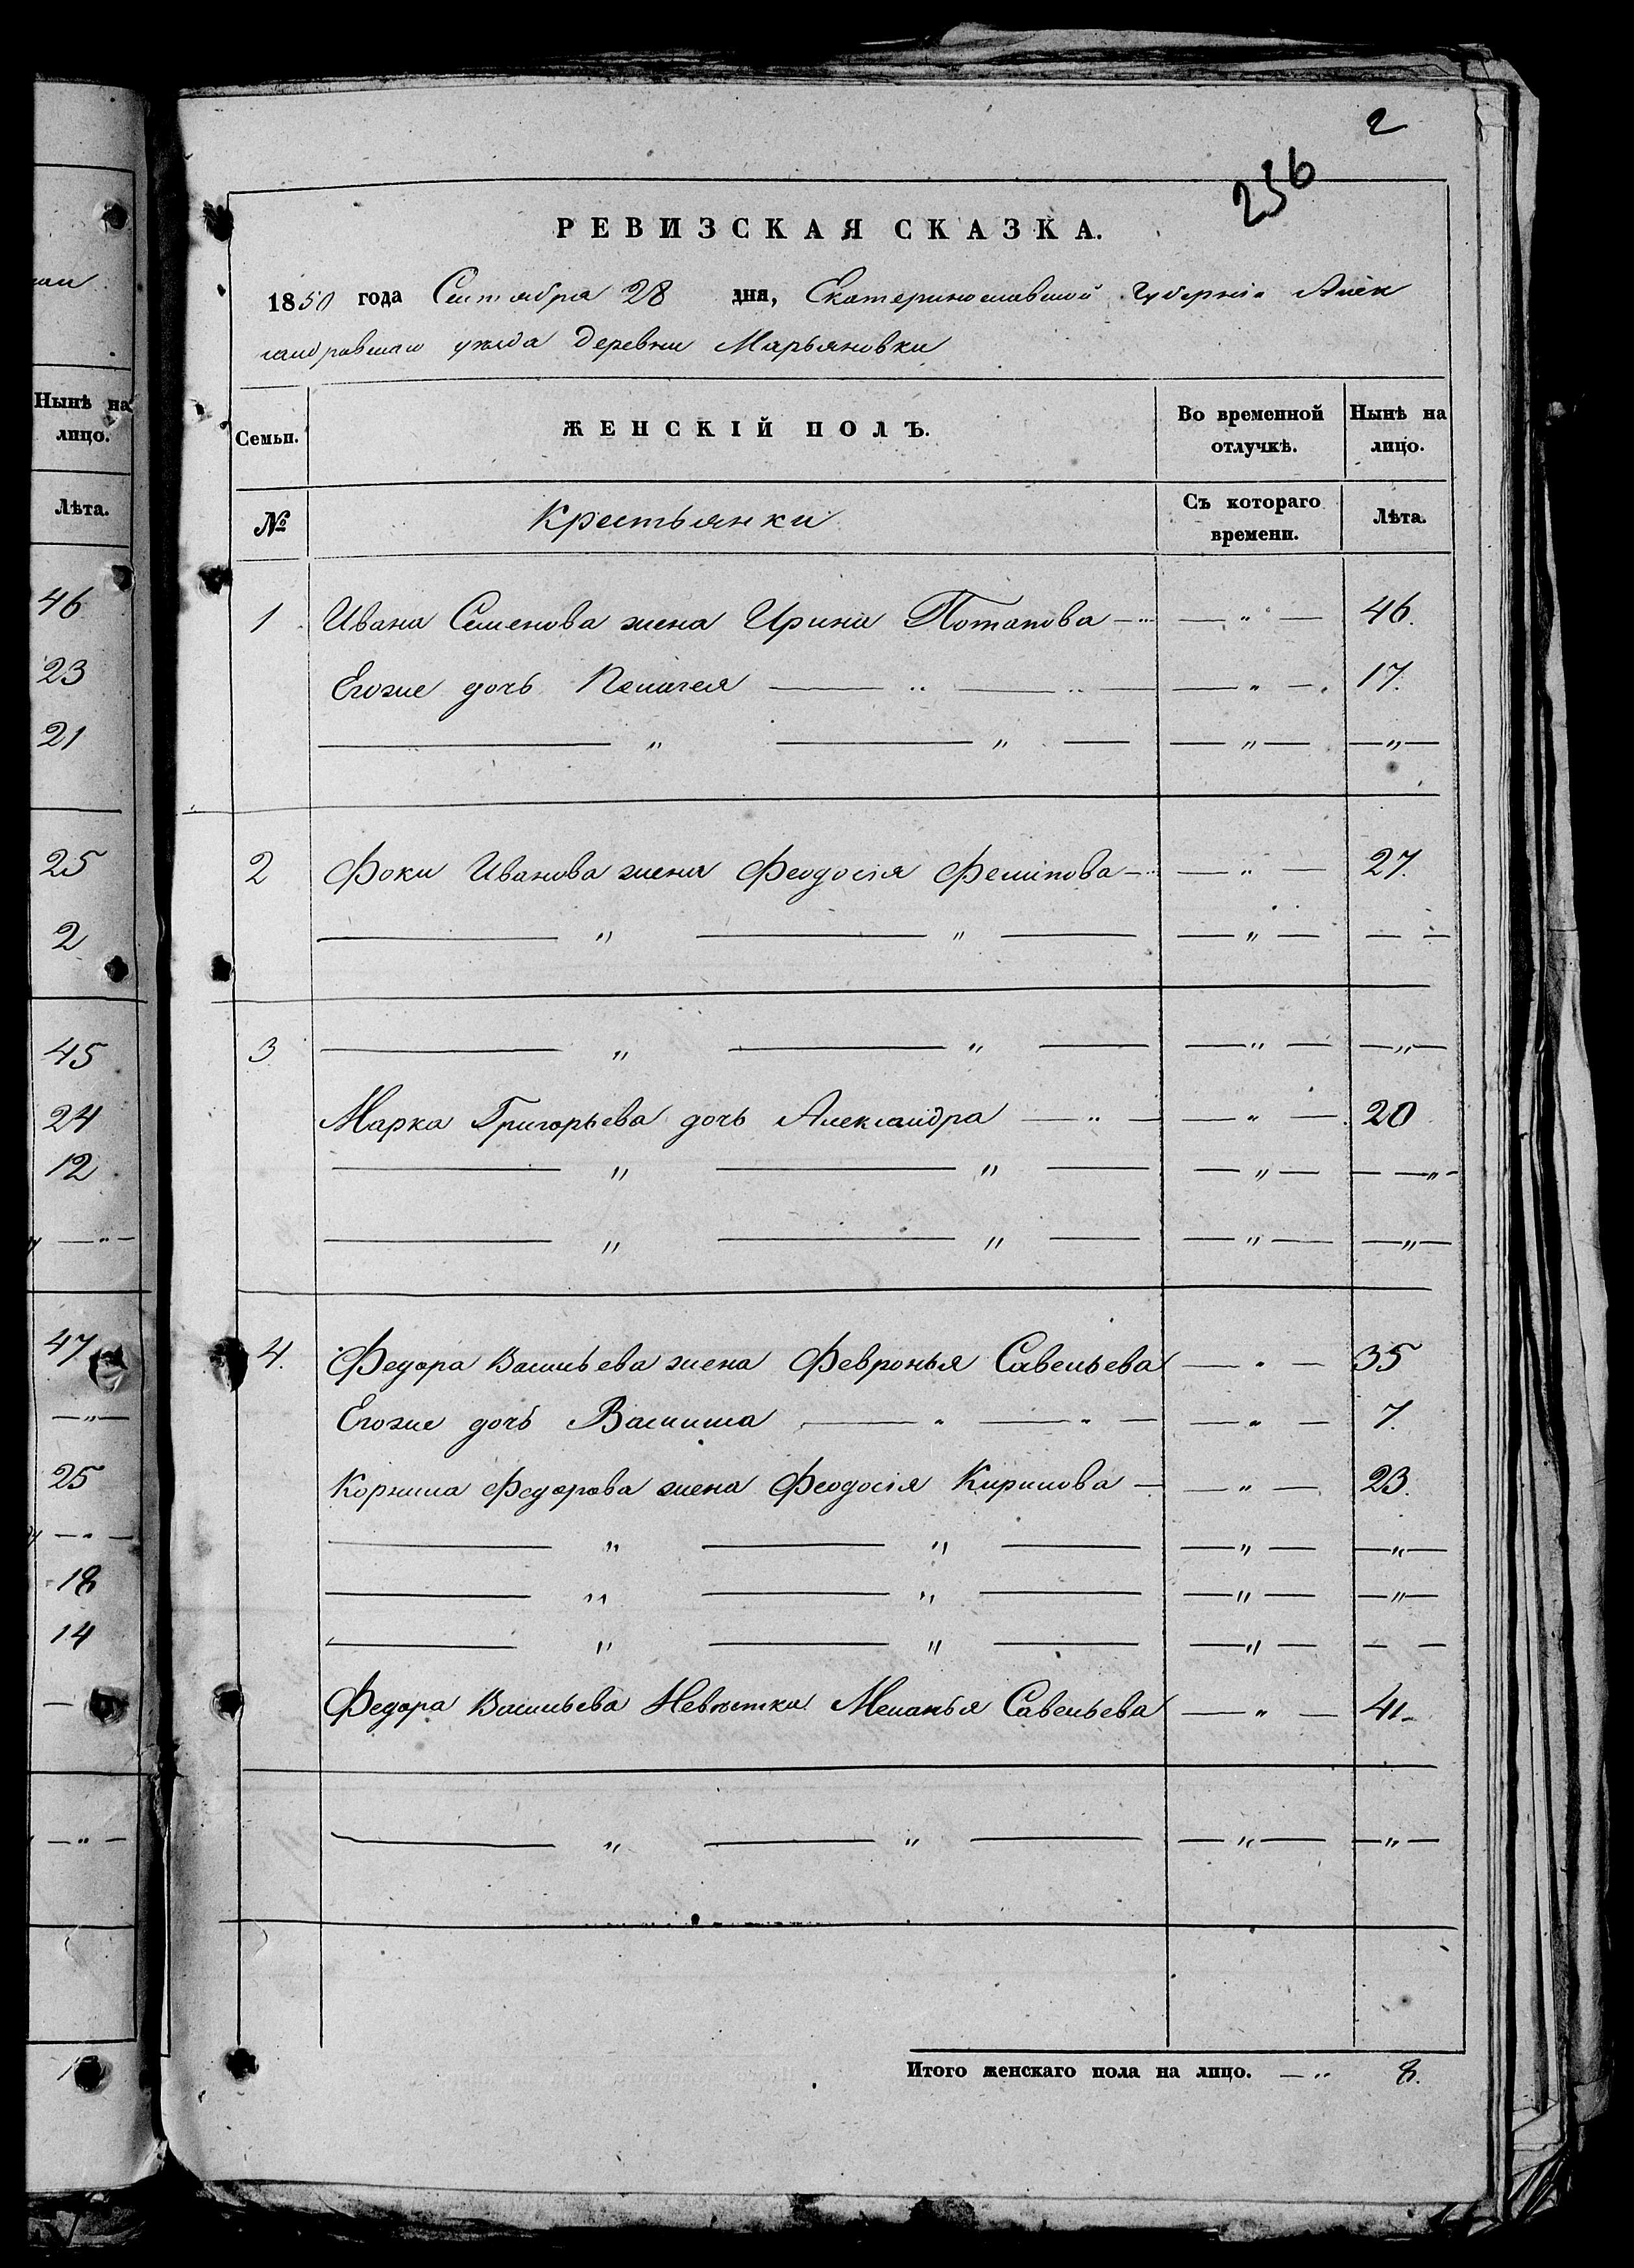 2
236
РЕВИЗСКАЯ СКАЗКА.
1850 года Сентября 28 дня, Екатеринославской Губерніи Алек
сандровскаго уѣзда деревни Марьяновки
Семьи. ЖЕНСКІЙ ПОЛЪ. Во временной отлучкѣ. Нынѣ на лицо.
№ Крестьянки Съ котораго времени. Лѣта.
1 Ивана Семенова жена Ирина Потапова — " — 46.
Егоже дочь Пелагея — " — " — — " — 17.
— " — " — — " — — " —
2 Фоки Иванова жена Феодосія Филипова — " — 27.
— " — " — — " — — —
3 — " — " — — " — — " —
Марка Григорьева дочь Александра — " — — " — 20
— " — " — — " — — " —
— " — " — — " — — " —
4. Федора Васильева жена Февронья Савельева — " — 35
Егоже дочь Василиса — " — " — — " — 7.
Корнила Федорова жена Феодосія Кирилова — — " — 23.
— " — " — — " — — " —
— " — " — — " — — " —
— " — " — — " — — —
Федора Васильева Невѣстка Меланья Савельева — " — 41
— " — " — — " — — " —
Итого женскаго пола на лицо. — " 8.
Нынѣ на
лицо.
Лѣта.
46
23
21
25
2
45
24
12
— " —
47
— " —
25
— " —
18
14
—
— " —